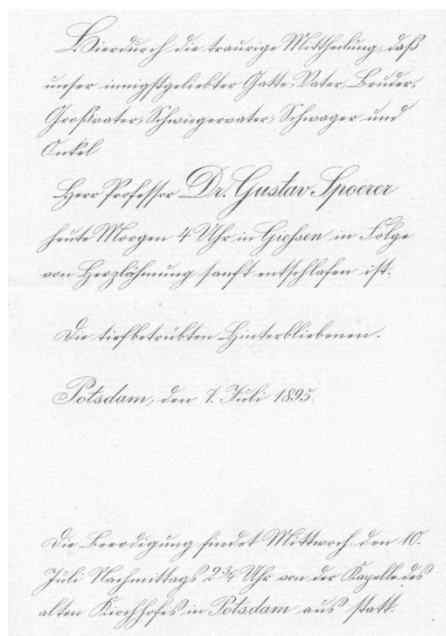 Hierdurch die traurige Mittheilung, daß
unser innigstgeliebter Gatte, Vater, Bruder,
Großvater, Schwiegervater, Schwager und
Onkel
Herr Professor Dr. Gustav Spoerer
heute Morgen 4 Uhr in Giessen in Folge
von Herzlähmung sanft entschlafen ist.
Die tiefbetrübten Hinterbliebenen.
Potsdam, den 7. Juli 1895.
Die Beerdigung findet Mittwoch den 10.
Juli Nachmittags 2¾ Uhr von der Kapelle des
alten Kirchhofes in Potsdam aus statt.